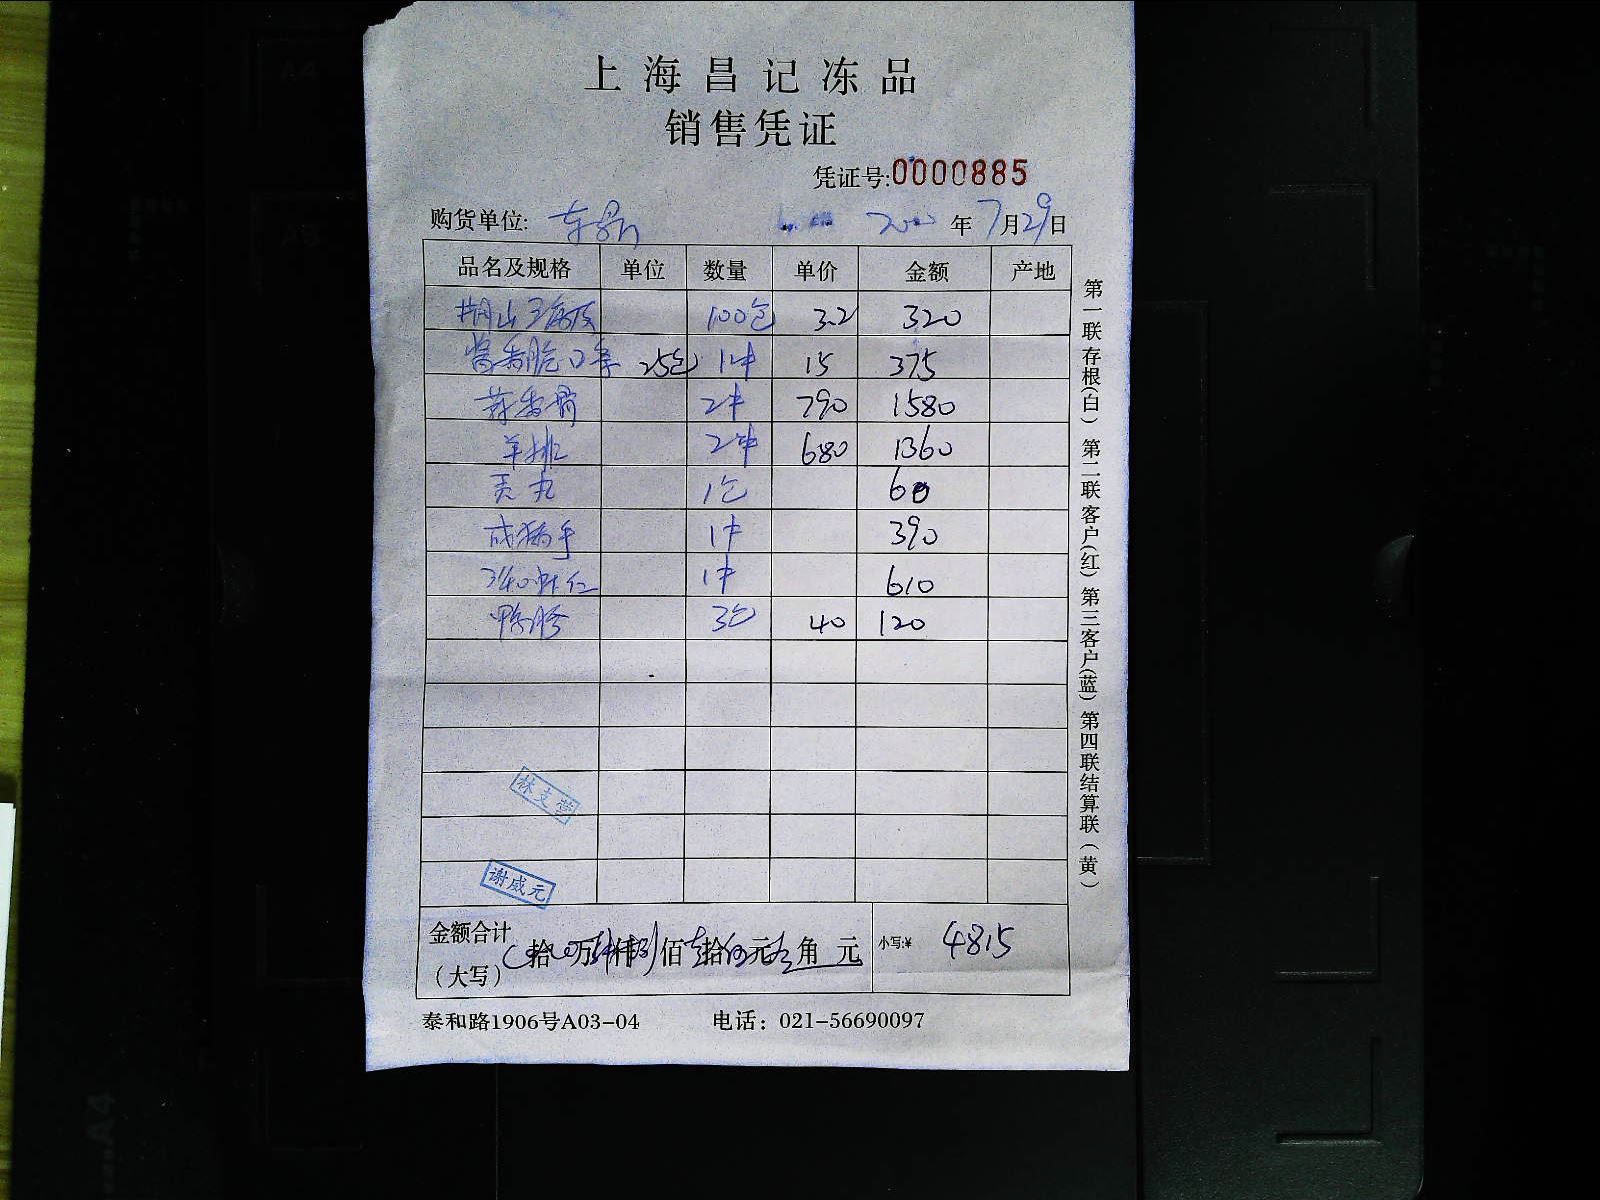 上海昌记冻品
销售凭证
凭证号:0000885
购货单位: 年7月29日
品名及规格 单位 数量 单价 金额 产地
100包 3.2 320
25包 1件 15 375
2件 790 1580
羊排 2件 680 1360
贡丸 1包 60
1件 390
虾仁 1件 610
鸭胗 3包 40 120
林支营
谢威元
金额合计
(大写) 拾 万 仟 佰 拾 元 角 元 小写:¥ 4815
泰和路1906号A03-04 电话：021-56690097
第一联存根(白) 第二联客户(红) 第三客户(蓝) 第四联结算联(黄)